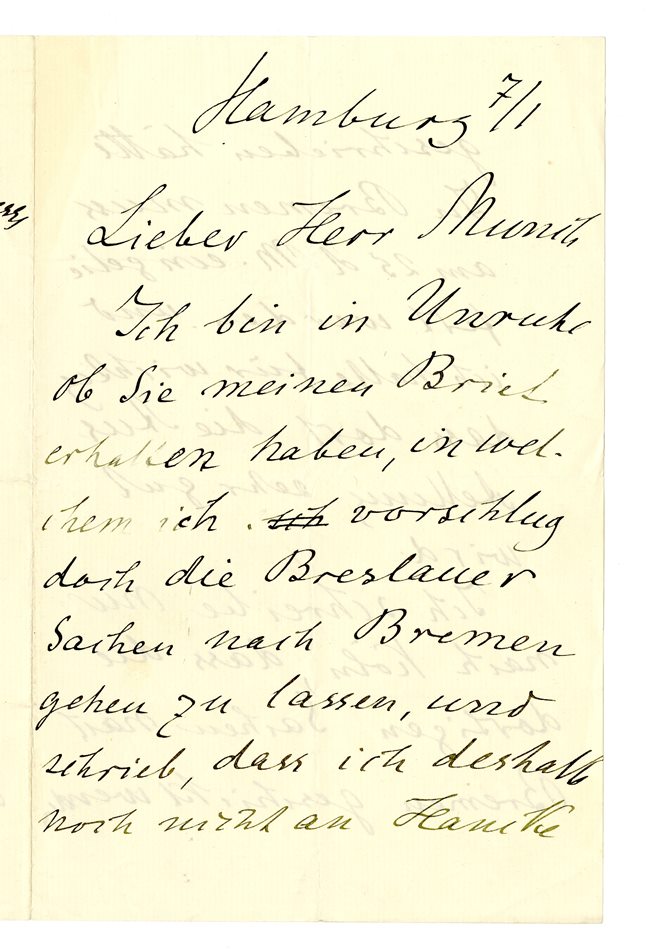 Hamburg 7/1
Lieber Herr Munch
Ich bin in Unruhe
ob Sie meinen Brief
erhalten haben, in wel-
chem ich . ich vorschlug
doch die Breslauer
Sachen nach Bremen
gehen zu lassen, und
schrieb, dass ich deshalb
noch nicht an Hancke